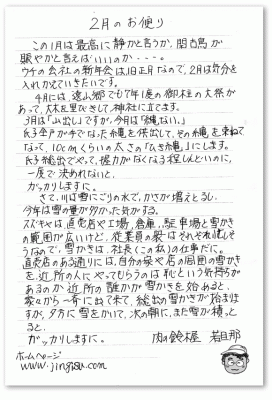 2月のお便り
この1月は最高に静かと言うか、閑古鳥が
賑やかと言えばいいのか・・・・。
ウチの会社の新年会は旧正月なので、2月は気分を
入れかえていきたいです。
4月には、遠山郷でも7年1度の御柱の大祭が
あって、大木を里びきして、神社に立てます。
3月は「山出し」ですが、今月は「縄ない。」
氏子全戸がキでなった縄を供出して、その縄を束ねて
なって、10cmくらいの太さの「ひき縄」にします。
氏子総出でやって、握力がなくなる程しんどいのに、
一度で決めれないと、
ガッカリしますに。
さて、川は雪にごりの水で、かさが増えとるし、
今年は雪の量が多かった気がする。
スズキヤは、直売店や工場、倉庫、駐車場と雪かき
の範囲が広いけど、従業員の衆はそれぞれ忙しそ
うなので、雪かきは、社長(この私)の仕事だに。
直売店のある通りには、自分の家や店の周囲の雪かき
を、近所の人にやってもらうのは恥という気持ちが
あるのか近所の誰かが雪かきを始めると、
家々から一斉に出て来て、総出の雪かきが始まりま
すが、夕方に雪をかいて、次の朝に、また雪が積っと
ると、
ガッカリしますに。
肉の鈴木屋 若旦那
ホームページ
www.jingisu.com